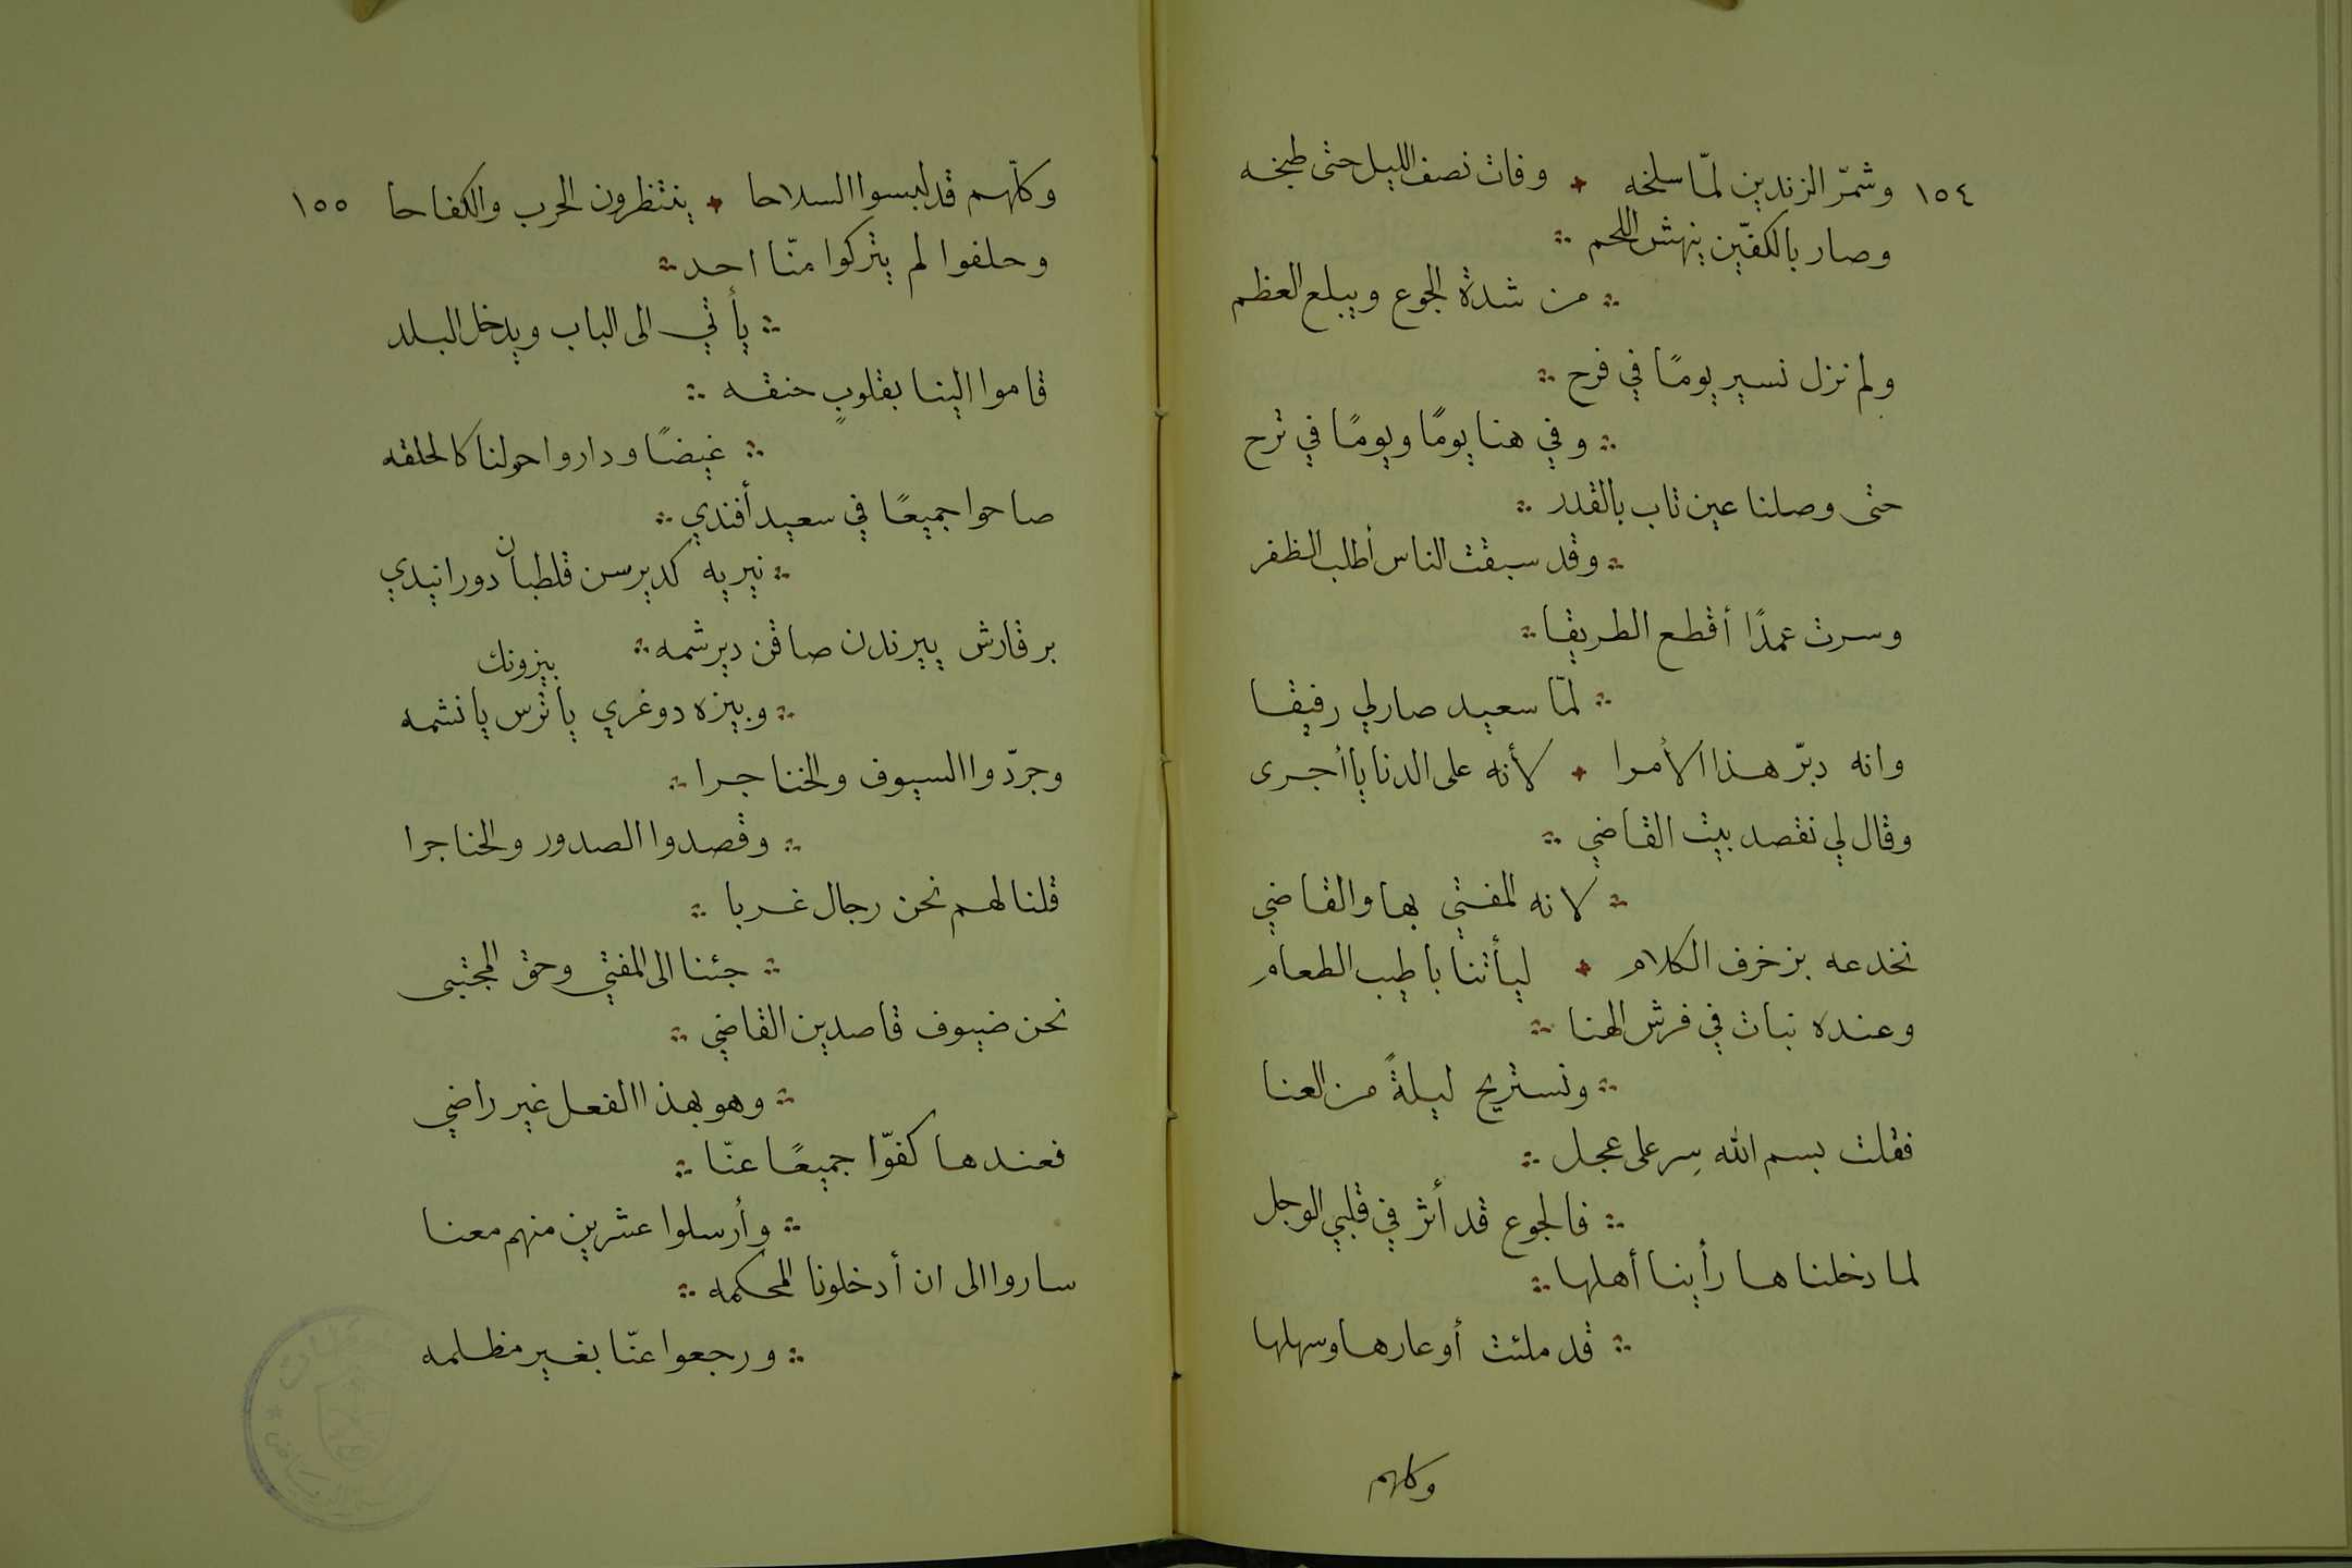 ١٥٤ وشمّر الزندين لمّا سلخه وفات نصف الليل حتى طبخه
وصار بالكفّين ينهش اللحم
من شدة الجوع ويبلع العظم
ولم نزل نسير يومًا في فرح
وفي هنا يومًا ويومًا في ترح
حتى وصلنا عين تاب بالقدر
وقد سبقت الناس أطلب الظفر
وسرت عمدًا أقطع الطريقا
لمّا سعيد صار لي رفيقا
وانه دبّر هذا الأمرا لأنه على الدنايا أجرى
وقال لي نقصد بيت القاضي
لانه المفتي بها والقاضي
نخدعه بزخرف الكلام ليأتنا باطيب الطعام
وعنده نبات في فرش الهنا
ونستريح ليلةً من العنا
فقلت بسم الله سِر على عجل
فالجوع قد أثر في قلبي الوجل
لما دخلناها رأينا أهلها
قد ملئت أوعارها وسهلها
وكلهم
وكلّهم قد لبسوا السلاحا ينتظرون الحرب والكفاحا ١٥٥
وحلفوا لم يتركوا منّا احد
يأتي الى الباب ويدخل البلد
قاموا الينا بقلوبٍ حنقه
غيضًا وداروا حولنا كالحلقه
صاحوا جميعًا في سعيد أفندي
نيريه كديرسن قلطبان دورانيدي
بر قارش ييرندن صاقن ديرشمه
بيزونك
وبيزه دوغري ياترس يانشمه
وجرّدوا السيوف والخناجرا
وقصدوا الصدور والحناجرا
قلنا لهم نحن رجال غربا
جئنا الى المفتي وحق المجتبى
نحن ضيوف قاصدين القاضي
وهو بهذا الفعل غير راضي
فعندها كفوّا جميعًا عنّا
وأرسلوا عشرين منهم معنا
ساروا الى ان أدخلونا المحكمه
ورجعوا عنّا بغير مظلمه